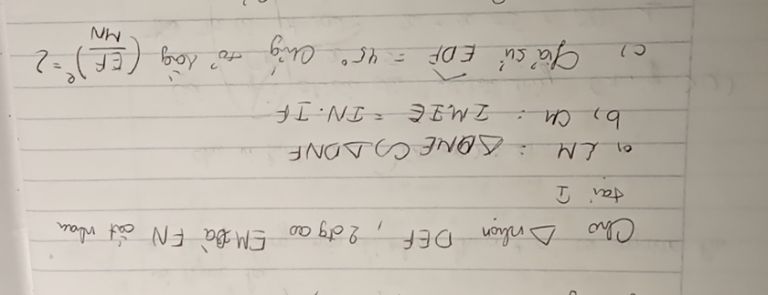 Cho Δ nhọn DEF, 2 đg cao EM và FN cắt nhau
tại I
a, CM : ΔDME ∽ ΔDNF
b, CM : IM.IE = IN.IF
c) Giả sử EDF = 45° Chứng tỏ rằng (EF/MN)² = 2